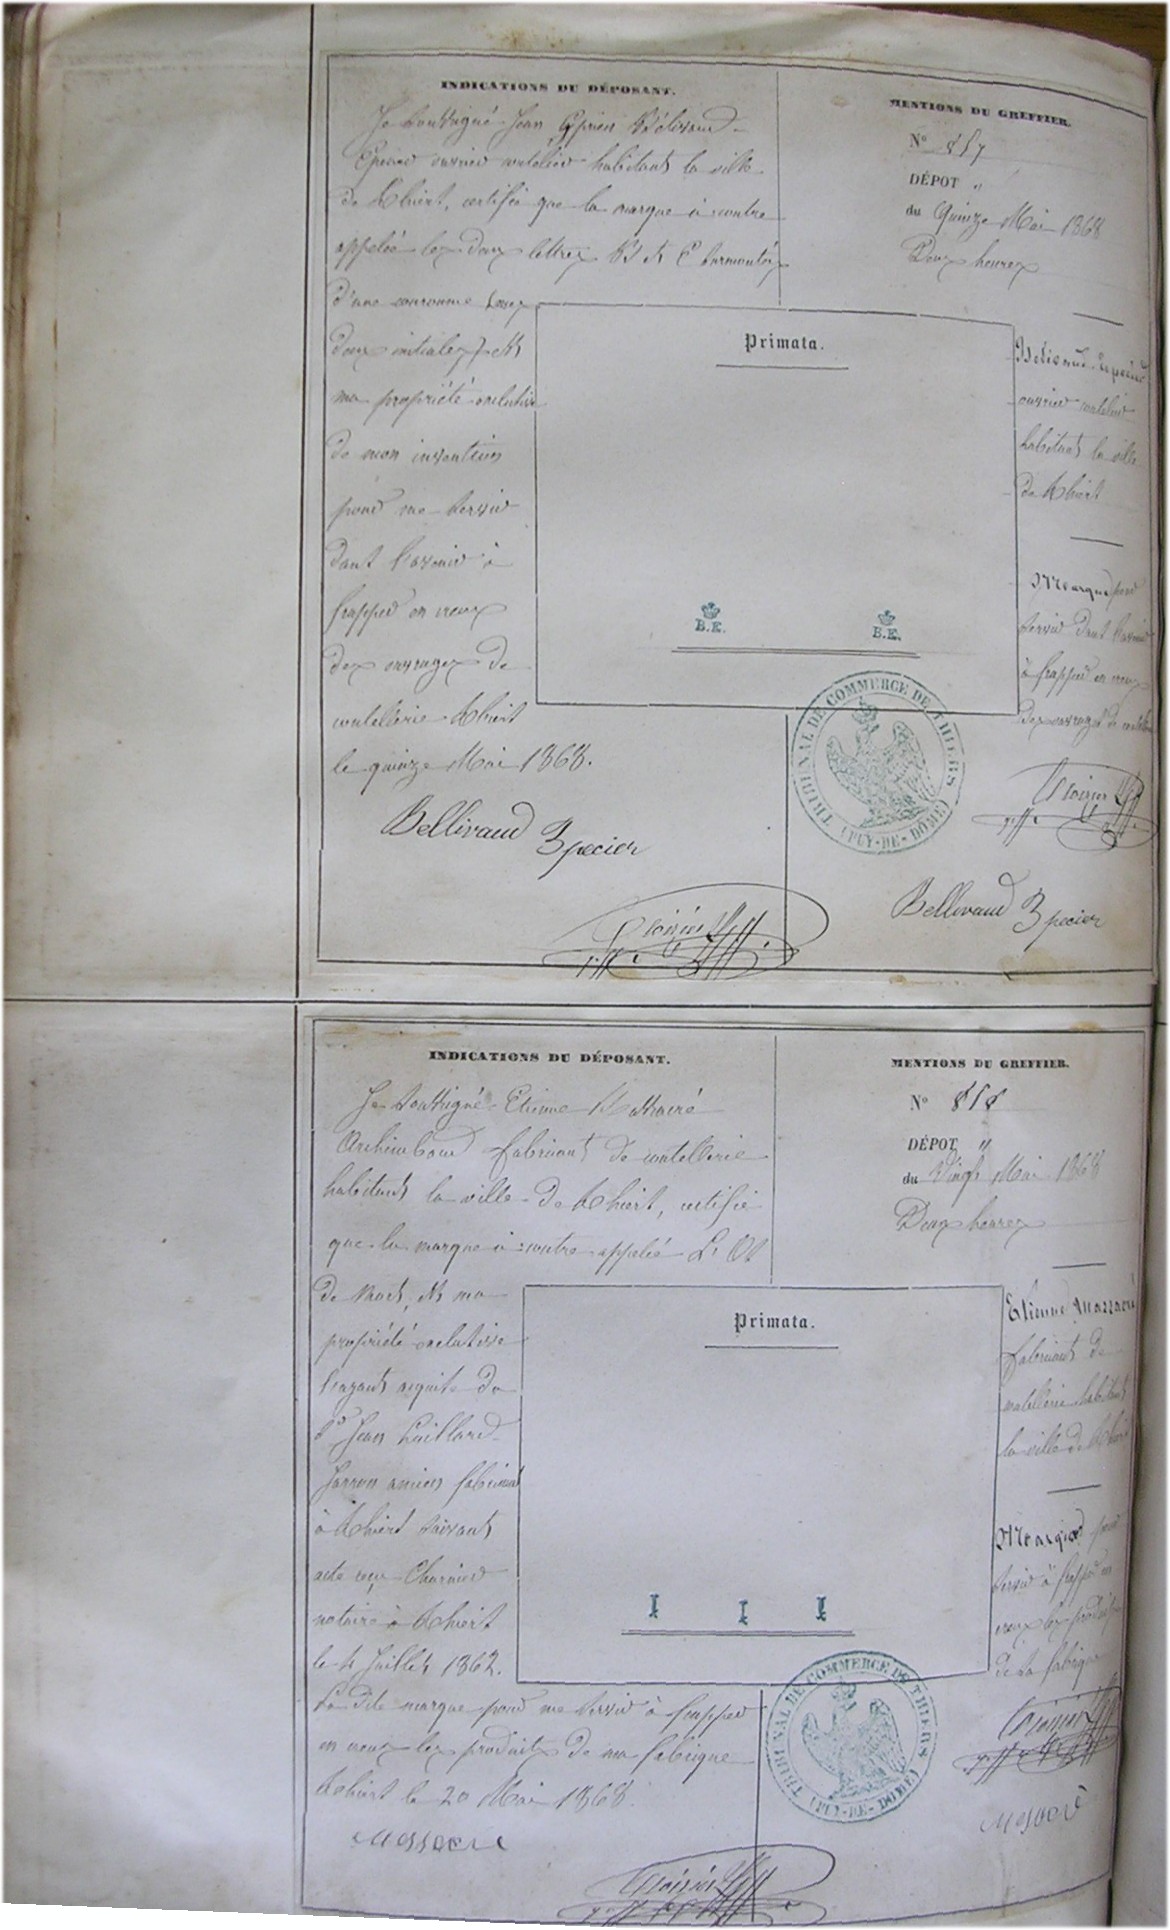 INDICATIONS DU DÉPOSANT.
Je soussigné Jean
Epicier ouvrier coutelier habitant la ville
de Thiers, certifie que la marque ci contre
appelée les deux lettres B et E surmontées
d'une couronne
deux initiales) est
ma propriété exclusive
de mon invention
pour me servir
dans l'avenir à
frapper en creux
des ouvrages de
coutellerie Thiers
le quinze Mai 1868.
Bellivaud Epecier
MENTIONS DU GREFFIER.
N° 857
DÉPOT
du Quinze Mai 1868
Deux heures
ouvrier coutelier
habitant la ville
de Thiers
Marque pour
servir dans l'avenir
à frapper en creux
des ouvrages de
Bellivaud Epecier
Primata.
B.E. B.E.
TRIBUNAL DE COMMERCE DE THIERS
(PUY-DE-DÔME)
INDICATIONS DU DÉPOSANT.
Je soussigné Etienne
Archimbaud fabricant de coutellerie
habitant la ville de Thiers, certifie
que la marque ci contre appelée L'Os
de mort, est ma
propriété exclusive
l'ayant acquise de
Sr Jean
ancien fabricant
à Thiers suivant
acte reçu
notaire à Thiers
le 4 Juillet 1862.
La dite marque pour me servir à frapper
en creux les produits de ma fabrique
Thiers le 20 Mai 1868.
MENTIONS DU GREFFIER.
N° 858
DÉPOT
du Vingt Mai 1868
Deux heures
Etienne
fabricant de
coutellerie habitant
la ville de Thiers
Marque pour
servir à frapper en
creux les produits
de sa fabrique
Primata.
TRIBUNAL DE COMMERCE DE THIERS
(PUY-DE-DÔME)